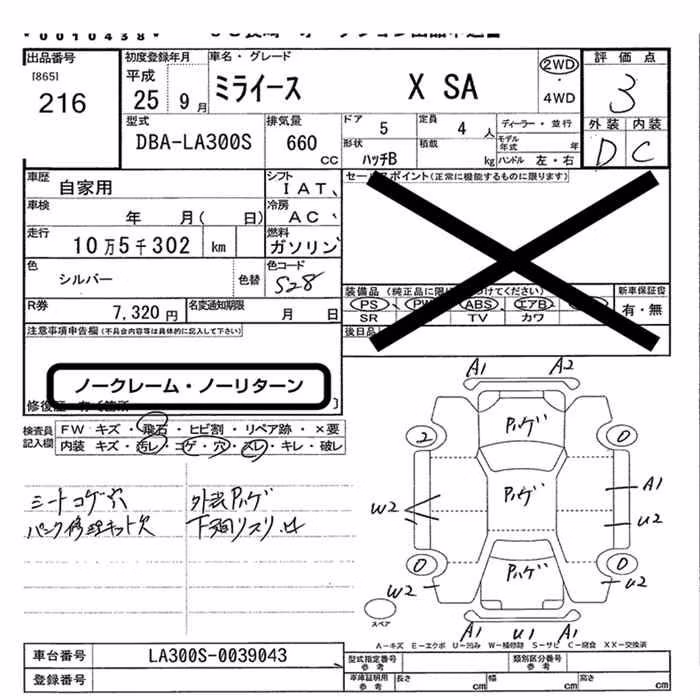 *0010438*
出品番号
[865]
216
初度登録年月
平成
25 9月
車名・グレード
ミライース X SA
2WD
4WD
評価点
3
外装 内装
D C
型式
DBA-LA300S
排気量
660
CC
ドア
5
定員
4 人
ディーラー・並行
モデル年式 年
形状
ハッチB
積載
kg
ハンドル 左・右
車歴
自家用
シフト
IAT
車検
年 月( 日)
冷房
AC
走行
10万5千302 km
燃料
ガソリン
色
シルバー
色替
色コード
S28
R券
7,320円
名変通知期限
月 日
セールスポイント(正常に機能するものに限ります)
PS PW ABS エアB
SR TV カワ
新車保証書
有・無
後日品
注意事項申告欄(不具合内容等は具体的に記入して下さい)
ノークレーム・ノーリターン
検査員記入欄
FW キズ・飛石・ヒビ割・リペア跡・×要
内装 キズ・汚レ・コゲ・穴・スレ・キレ・破レ
シートコゲ穴
パンク修理キット欠
外装ハゲ
A1 A2
ハゲ
2 0
ハゲ
W2
A1
U2
0 0
ハゲ
W2
U2
A1 U1 A1
スペア
A-キズ E-エクボ U-凹み W-補修跡 S-サビ C-腐食 XX-交換済
車台番号
LA300S-0039043
登録番号
型式指定番号
参考
類別区分番号
参考
車庫証明用
参考
長さ cm
幅 cm
高さ cm